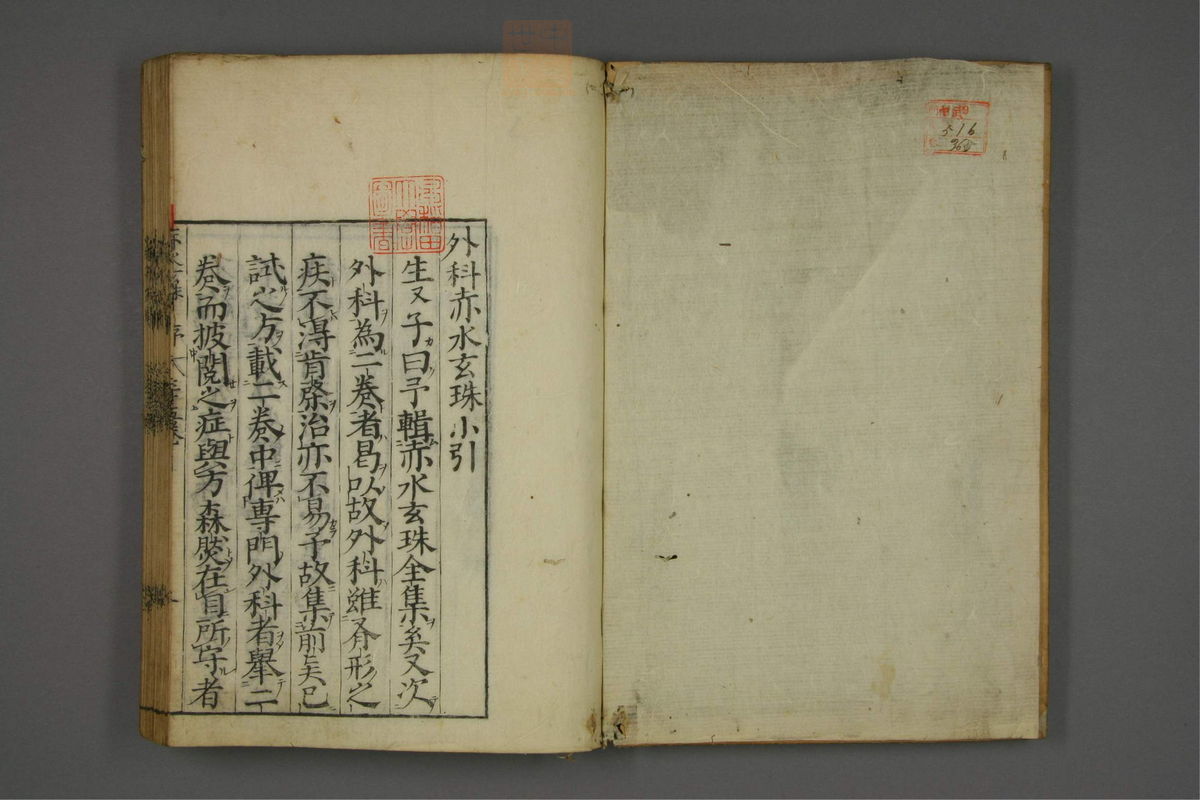 外科赤水玄珠小引
生生子曰予輯赤水玄珠全集矣又次
外科為二卷者曷以故外科雖有形之
疾不得肯綮治亦不易予故集前哲已
試之方載二卷中俾專門外科者舉二
卷而披閱之症與方森然在目所守者
早稲田
大學
圖書
516
368